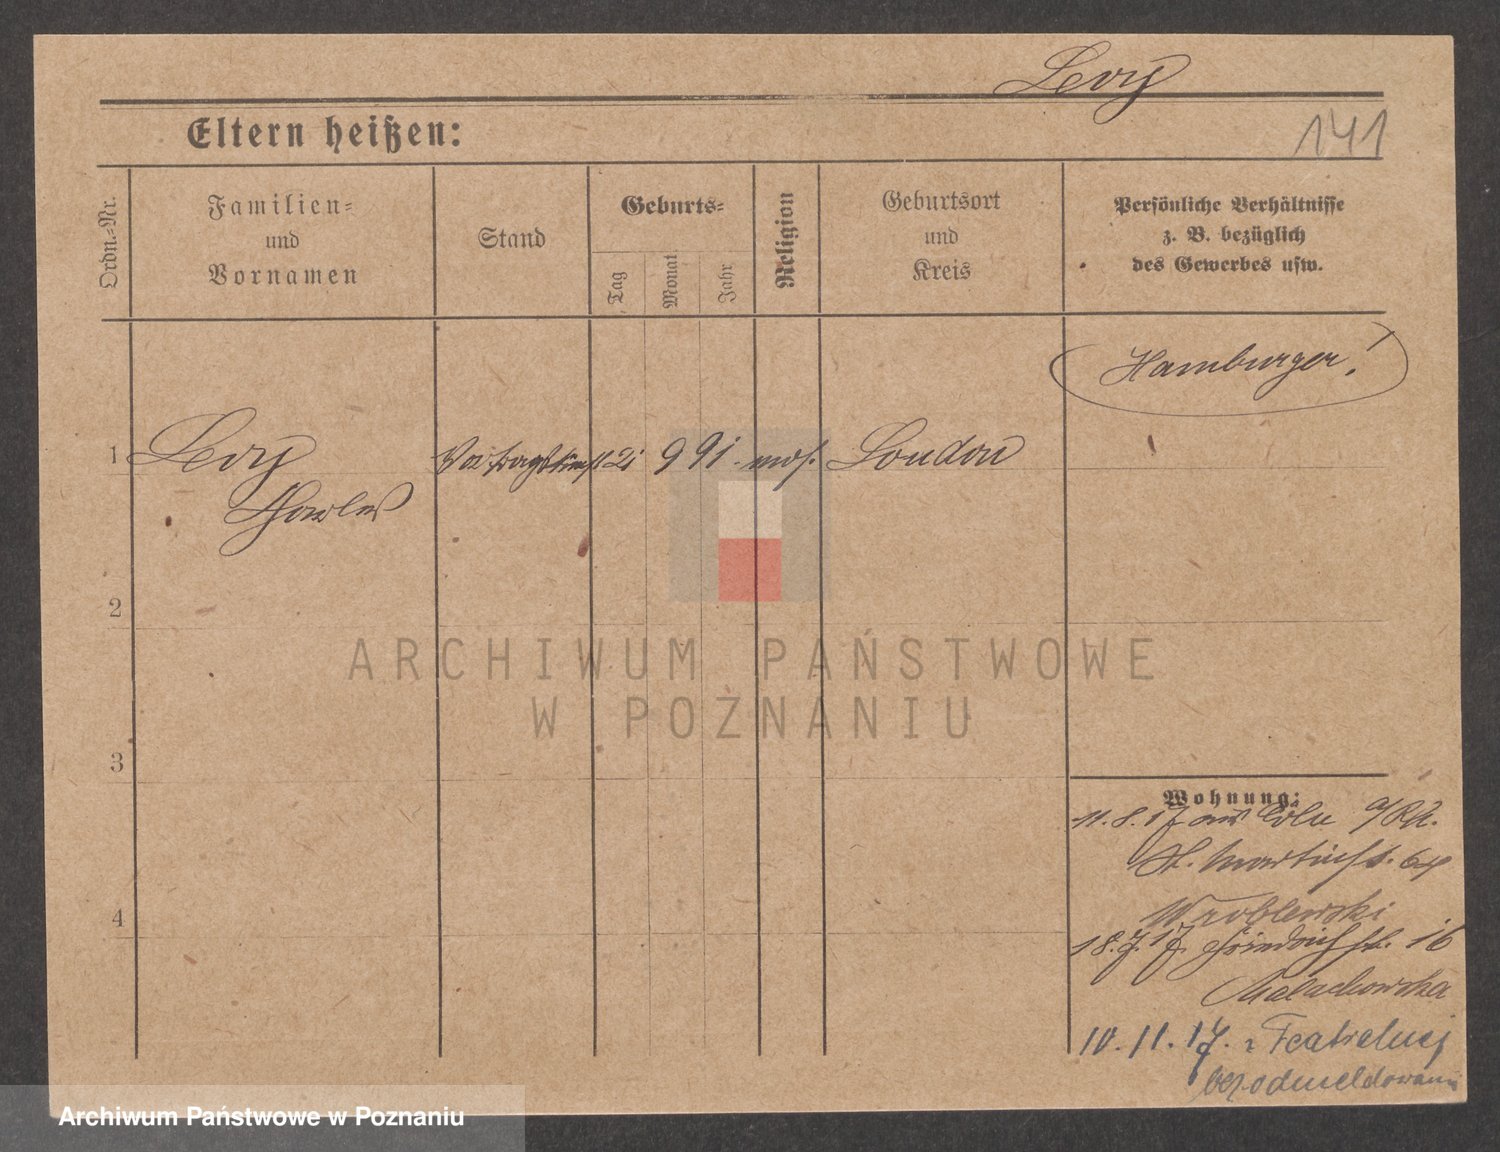 Levy
141
Eltern heißen:
Ordn.-Nr.
Familien-
und
Vornamen
Stand
Geburts-
Tag
Monat
Jahr
Religion
Geburtsort
und
Kreis
Persönliche Verhältnisse
z. B. bezüglich
des Gewerbes usw.
Hamburger!
1 Levy 9 91 mos. London
2
ARCHIWUM PAŃSTWOWE
W POZNANIU
3
Wohnung:
11. 8. 17 aus Cöln a/Rh.
St. Martinst. 64
Wroblewski
4
18. 17. Friedrichst. 16
Malachowska
10. 11. 17. z Teatralnej
bez odmeldowania
Archiwum Państwowe w Poznaniu